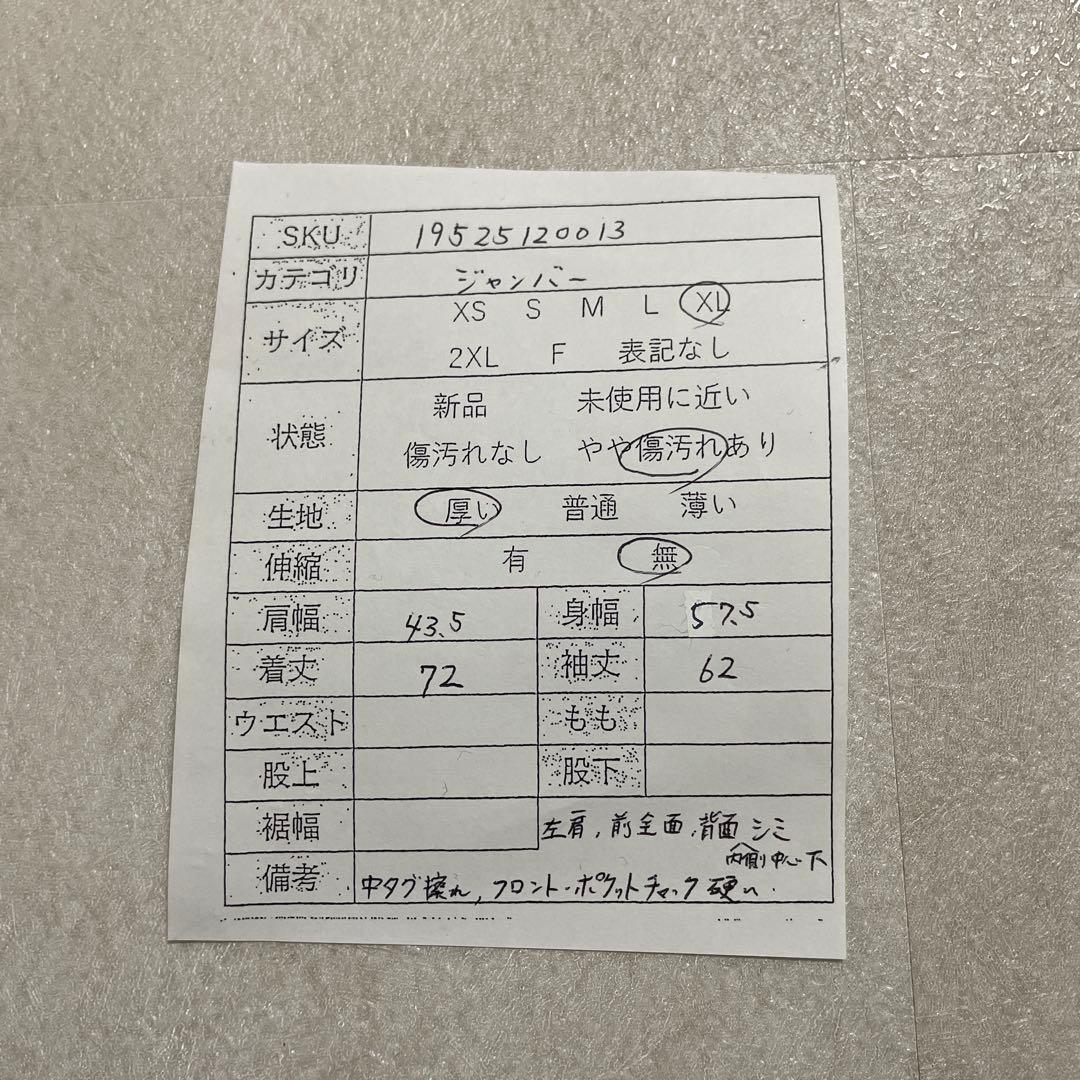 SKU 19525120013
カテゴリ ジャンバー
サイズ XS S M L XL
2XL F 表記なし
状態 新品 未使用に近い
傷汚れなし やや傷汚れあり
生地 厚い 普通 薄い
伸縮 有 無
肩幅 43.5 身幅 57.5
着丈 72 袖丈 62
ウエスト もも
股上 股下
裾幅 左肩,前全面,背面シミ
内側中心下
備考 中タグ擦れ,フロント・ポケットチャック硬い.